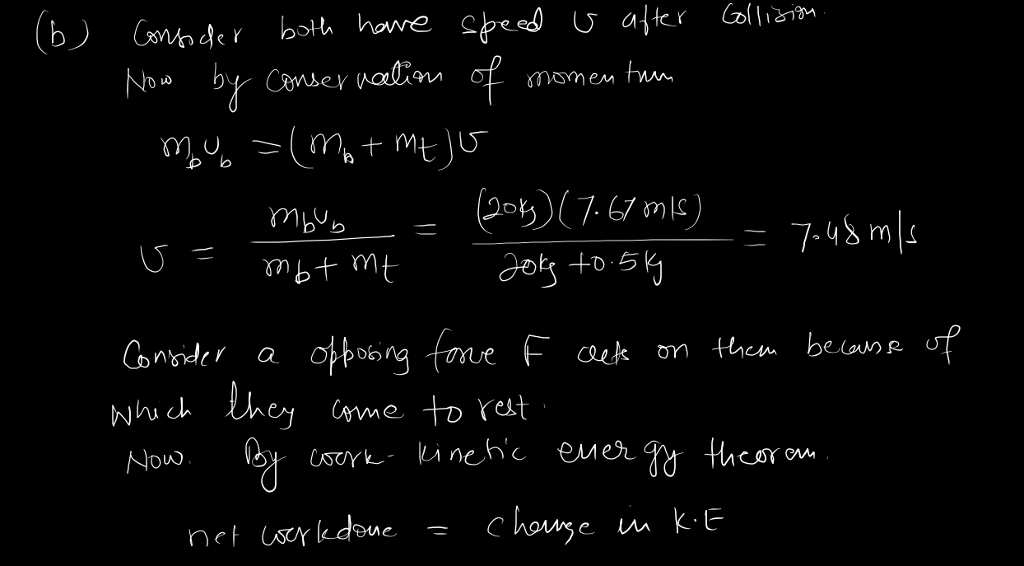 (b) Consider both have speed v after Collision.
Now by conservation of momentum
m_b v_b = (m_b + m_t) v
v = \frac{m_b v_b}{m_b + m_t} = \frac{(20kg)(7.67 m/s)}{20kg + 0.5kg} = 7.48 m/s
Consider a opposing force F acts on them because of
which they come to rest.
Now. By work-kinetic energy theorem.
net workdone = change in K.E